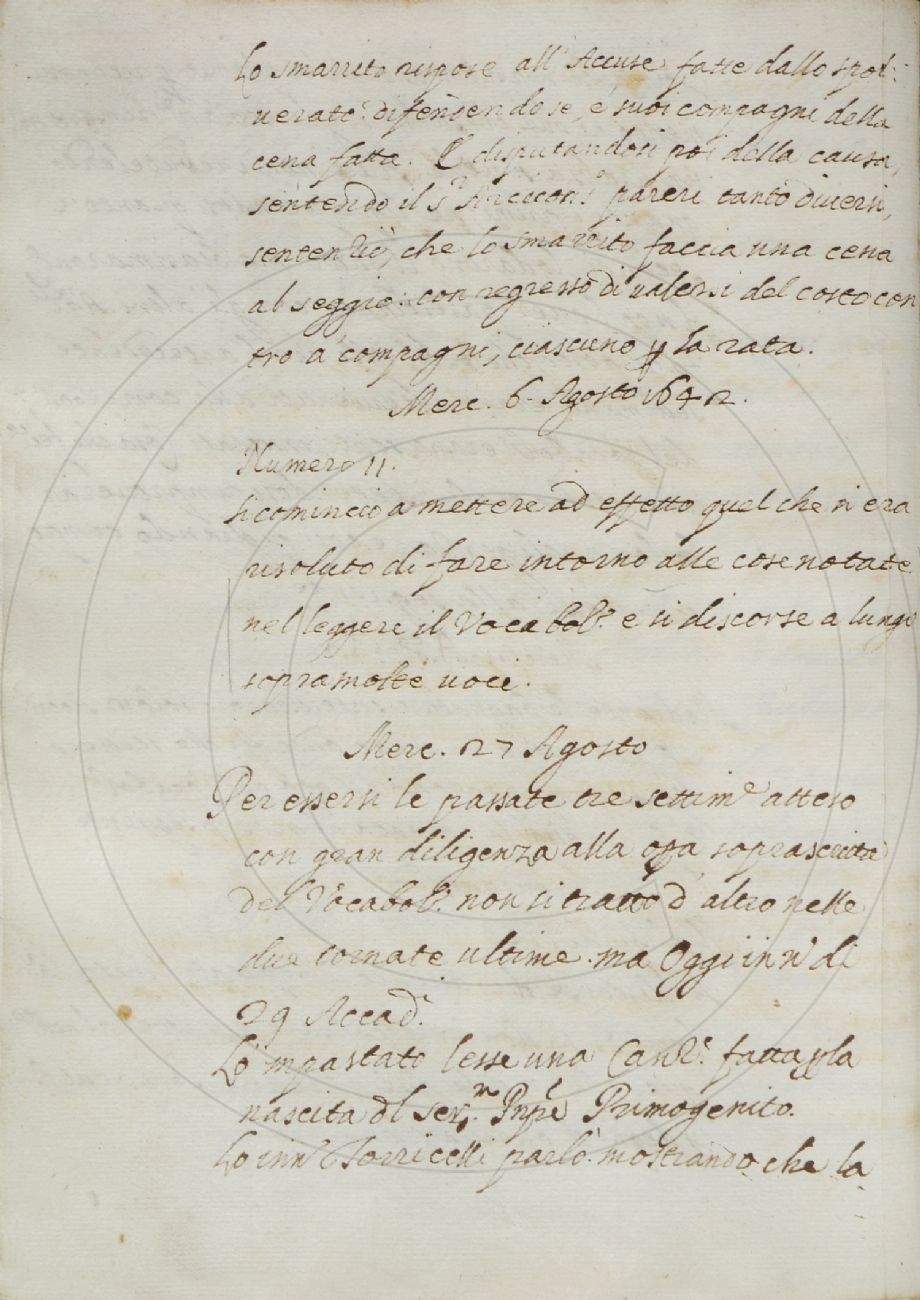 Lo smarrito rispose all'Accuse fatte dallo spol:
uerato: difensendo se, e suoi compagni della
cena fatta. E disputandosi poi della causa,
sentendo il s.r Arcicon.o pareri tanto diuersi,
sentenziò, che lo smarrito faccia una cena
al seggio: con regresso di ualersi del costo con
tro a compagni, ciascuno p la rata.
Merc. 6. Agosto 1642.
Numero 11.
Si cominciò a mettere ad effetto quel che si era
risoluto di fare intorno alle cose notate
nel leggere il Vocabol.o e si discorse a lungo
sopra molte uoci.
Merc. 27 Agosto
Per essersi le passate tre settim.e atteso
con gran diligenza alla opa soprascritta
del Vocabol.o non si trattò d'altro nelle
due tornate ultime. ma Oggi in n.o di
29 Accad.i
Lo'mpastato lesse una Canz.e fatta p la
nascita dl ser.mo Pnpe Primogenito.
Lo inn.o Torricelli parlò mostrando che la